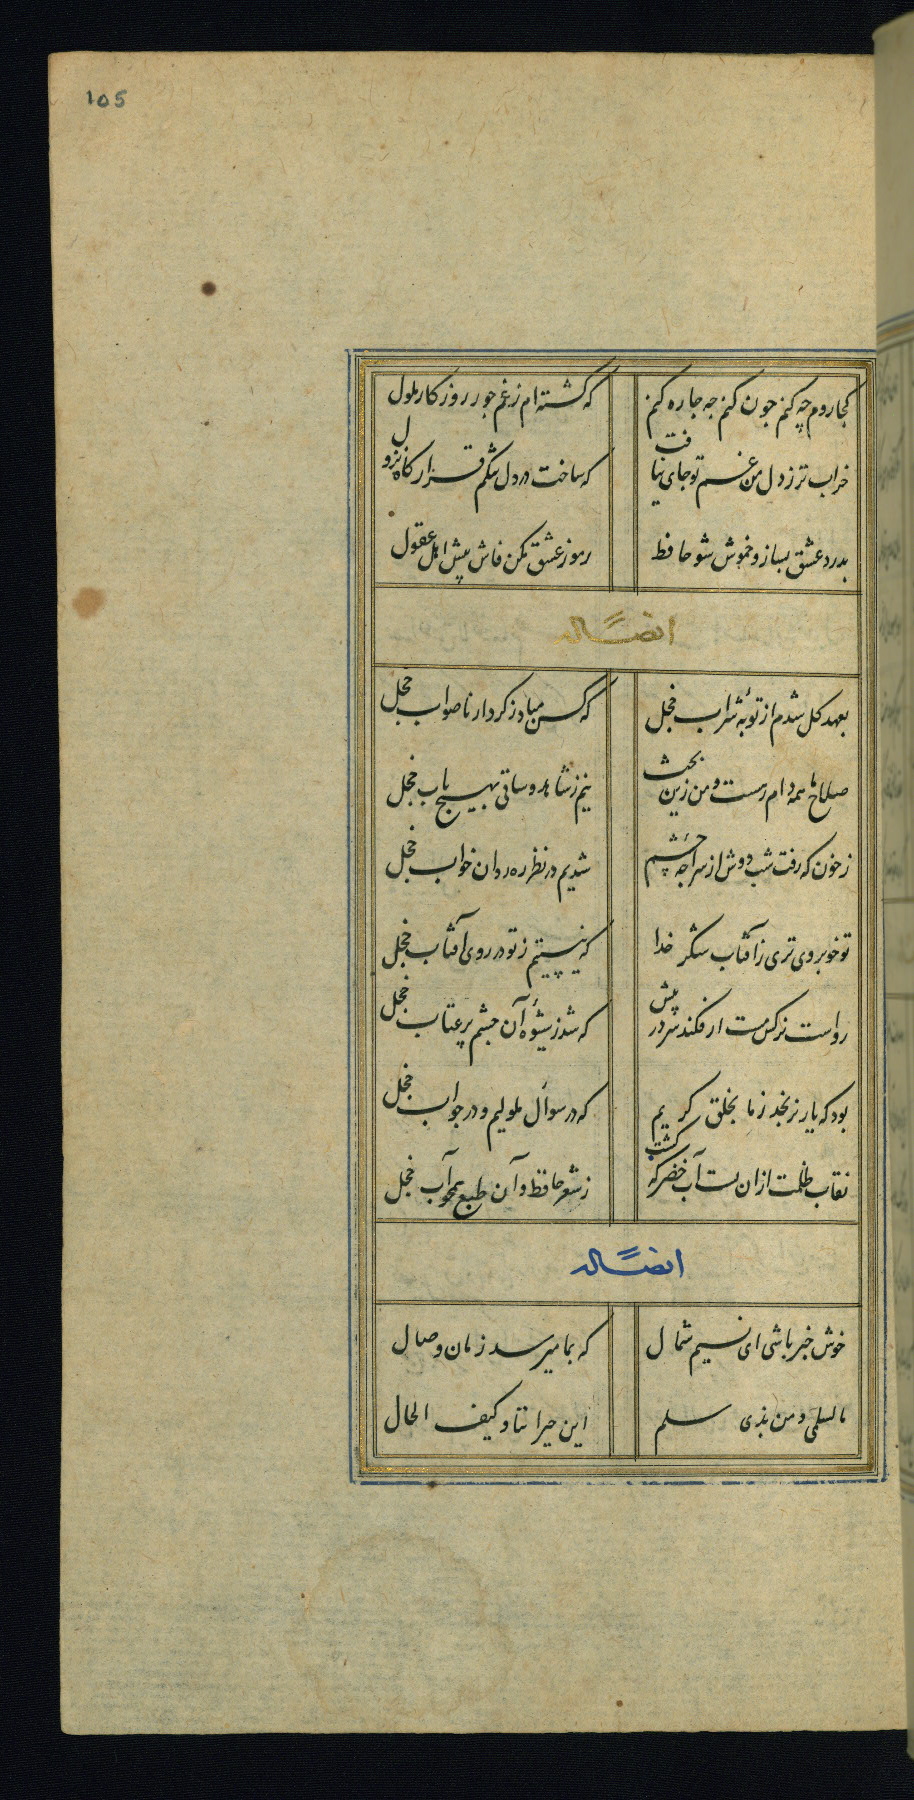 105
کجا روم چه کنم چون کنم چه چاره کنم که گشته ام ز غم جور روزگار ملول
خراب تر ز دل من غم تو جای نیافت که ساخت در دل تنگم قرارگاه نزول
بدرد عشق بساز و خموش شو حافظ رموز عشق مکن فاش پیش اهل عقول
ایضاً له
بعهد گل شدم از توبهٔ شراب خجل که کس مباد ز کردار ناصواب خجل
صلاح ما همه دام رهست و من زین بحث نیم ز شاهد و ساقی بهیچ باب خجل
ز خون که رفت شب دوش از سراچه چشم شدیم در نظر ره روان خواب خجل
تو خوبروی تری ز آفتاب شکر خدا که نیستیم ز تو در روی آفتاب خجل
رواست نرکس مست ار فکند سر در پیش که شد ز شیوهٔ آن چشم پر عتاب خجل
بود که یار نرنجد ز ما بخلق کریم که در سوال ملولیم و در جواب خجل
نقاب ظلمت ازان بست آب خضر که گشت ز شعر حافظ و آن طبع همچو آب خجل
ایضاً له
خوش خبر باشی ای نسیم شمال که بما میرسد زمان وصال
ما لسلمی و من بذی سلم این جیراننا و کیف الحال